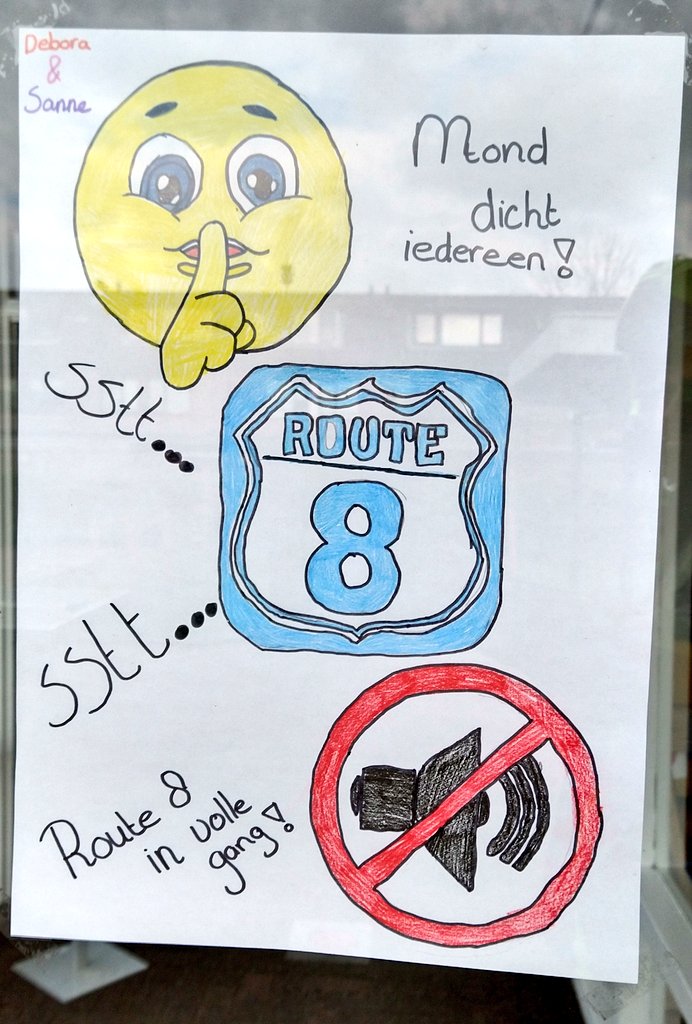 Debora
&
Sanne
Mond
dicht
iedereen!
sstt...
ROUTE
8
sstt...
Route 8
in volle
gang!